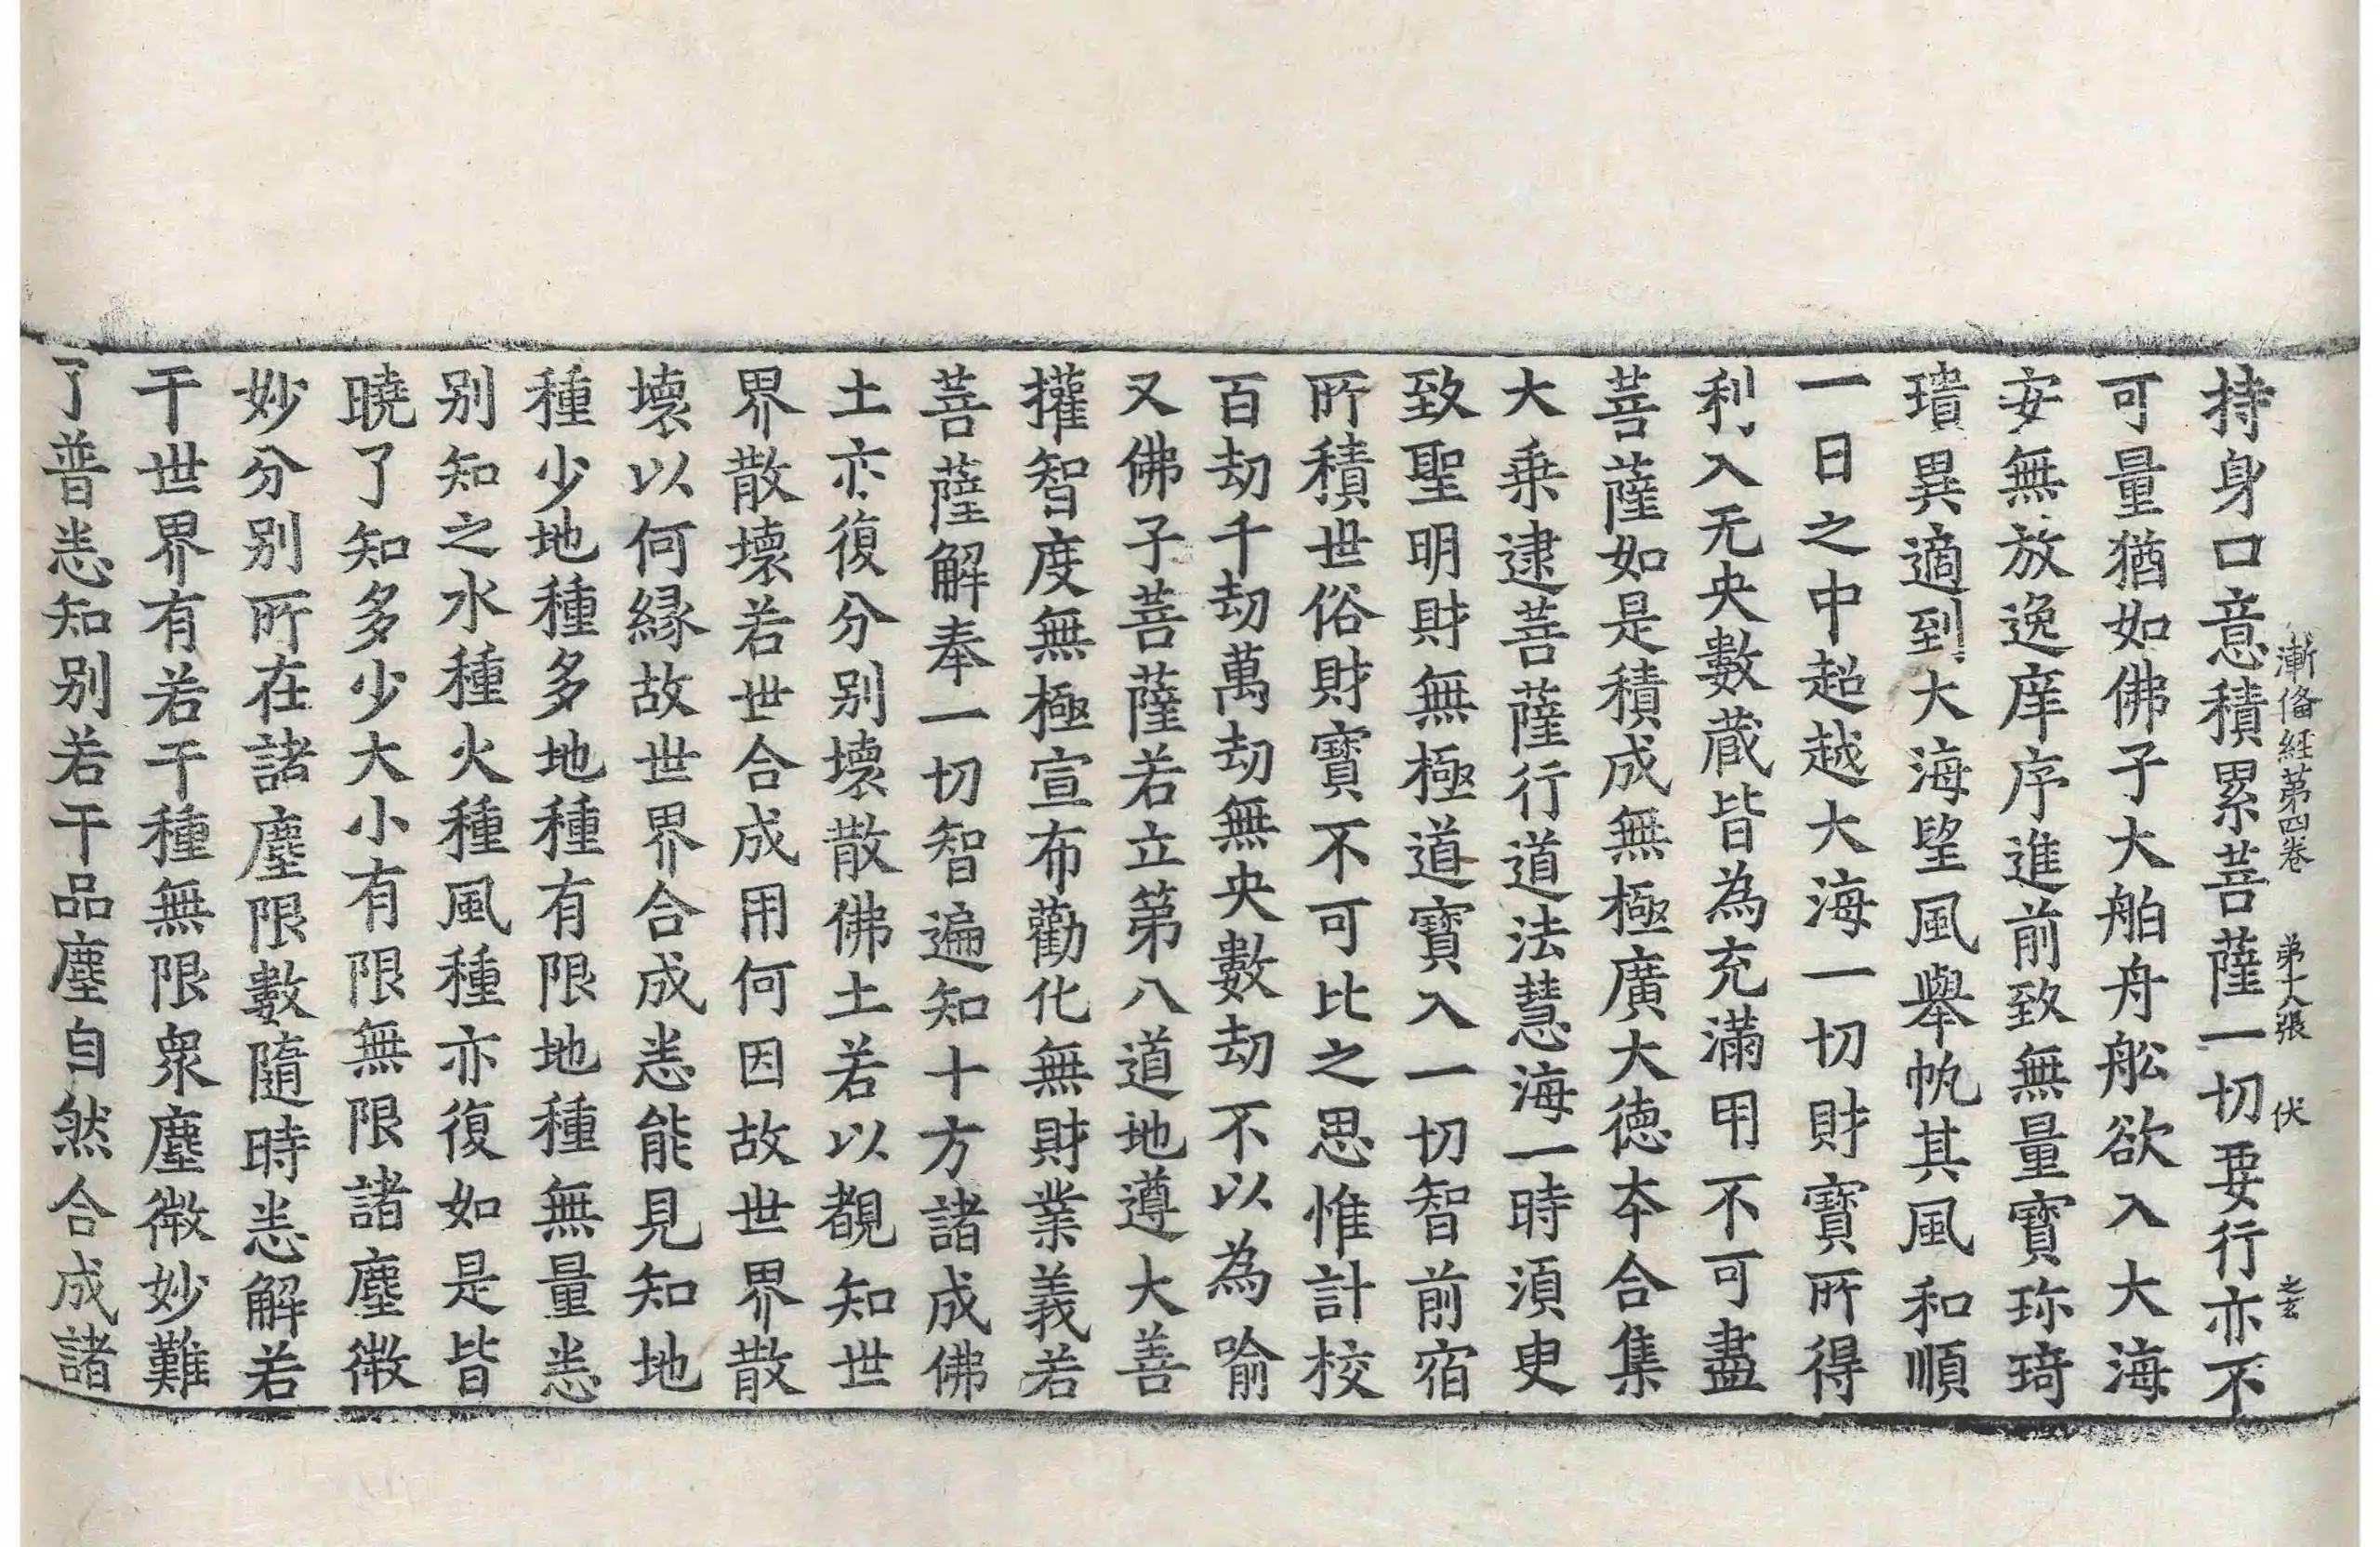 漸俻經第四卷 第十八張 伏
持身口意積累菩薩一切要行亦不
可量猶如佛子大舶舟舩欲入大海
安無放逸庠序進前致無量寶珎琦
璝異適到大海望風舉帆其風和順
一日之中超越大海一切財寶所得
利入无央數蔵皆為充滿用不可盡
菩薩如是積成無極廣大德夲合集
大乗逮菩薩行道法慧海一時湏臾
致聖明財無極道寶入一切智前宿
所積世俗財寶不可比之思惟計校
百劫千劫萬劫無央數劫不以為喻
又佛子菩薩若立第八道地遵大善
㩲智度無極宣布勸化無財業義若
菩薩解奉一切智遍知十方諸成佛
土亦復分別壞散佛土若以覩知世
界散壞若世合成用何因故世界散
壞以何緣故世界合成悉能見知地
種少地種多地種有限地種無量悉
別知之水種火種風種亦復如是皆
曉了知多少大小有限無限諸塵微
妙分別所在諸塵限數隨時悉解若
干世界有若干種無限衆塵微妙難
了普悉知別若干品塵自然合成諸